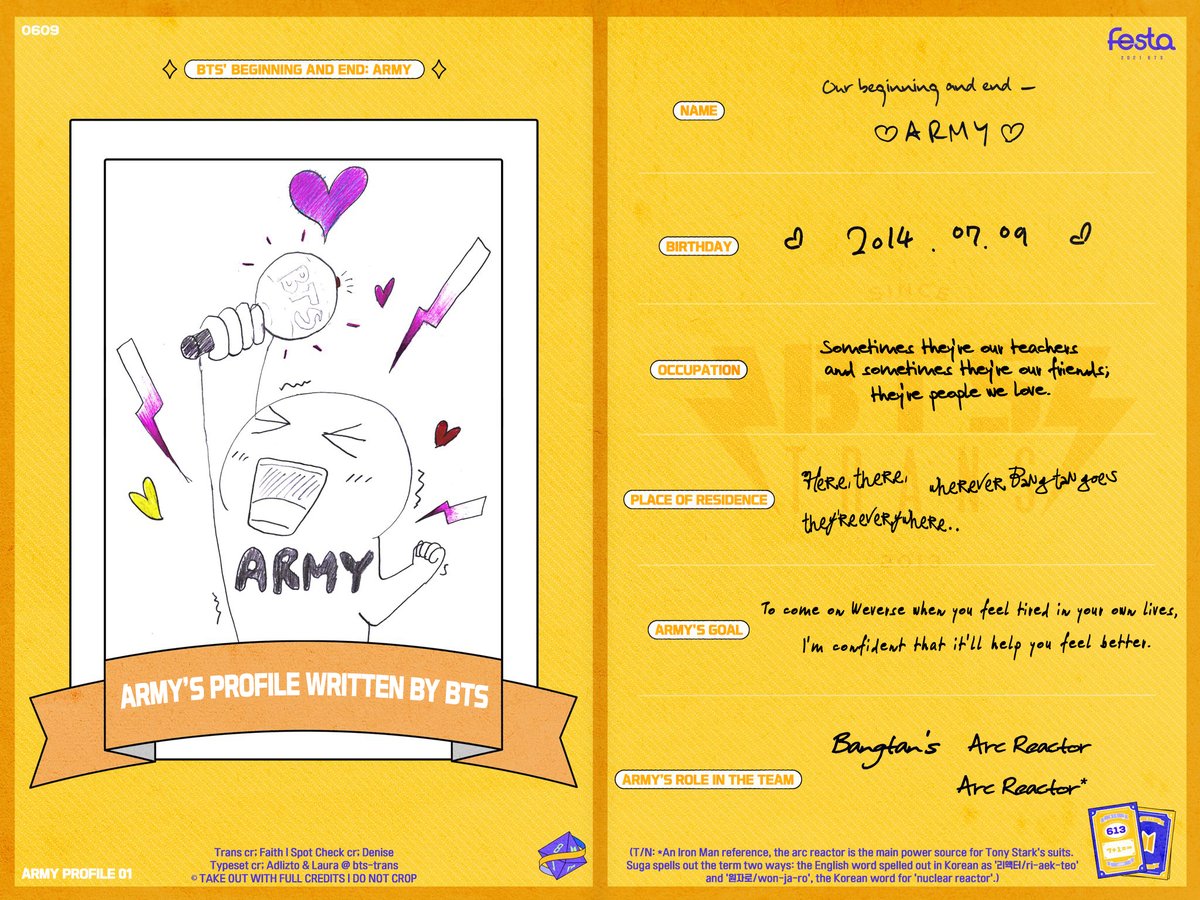 0609
BTS' BEGINNING AND END: ARMY
BTS
ARMY
ARMY'S PROFILE WRITTEN BY BTS
Trans cr; Faith I Spot Check cr; Denise
Typeset cr; Adlizto & Laura @ bts-trans
© TAKE OUT WITH FULL CREDITS I DO NOT CROP
ARMY PROFILE 01
festa
2021 BTS
NAME
Our beginning and end –
♡ ARMY ♡
BIRTHDAY
♡ 2014 . 07. 09 ♡
SINCE
OCCUPATION
Sometimes they're our teachers
and sometimes they're our friends;
they're people we love.
BTS
TRANS
2013
PLACE OF RESIDENCE
Here, there, wherever Bangtan goes
they're everywhere..
ARMY'S GOAL
To come on Weverse when you feel tired in your own lives,
I'm confident that it'll help you feel better.
ARMY'S ROLE IN THE TEAM
Bangtan's Arc Reactor
Arc Reactor*
(T/N: *An Iron Man reference, the arc reactor is the main power source for Tony Stark's suits.
Suga spells out the term two ways: the English word spelled out in Korean as '리액터/ri-aek-teo'
and '원자로/won-ja-ro', the Korean word for 'nuclear reactor'.)
613